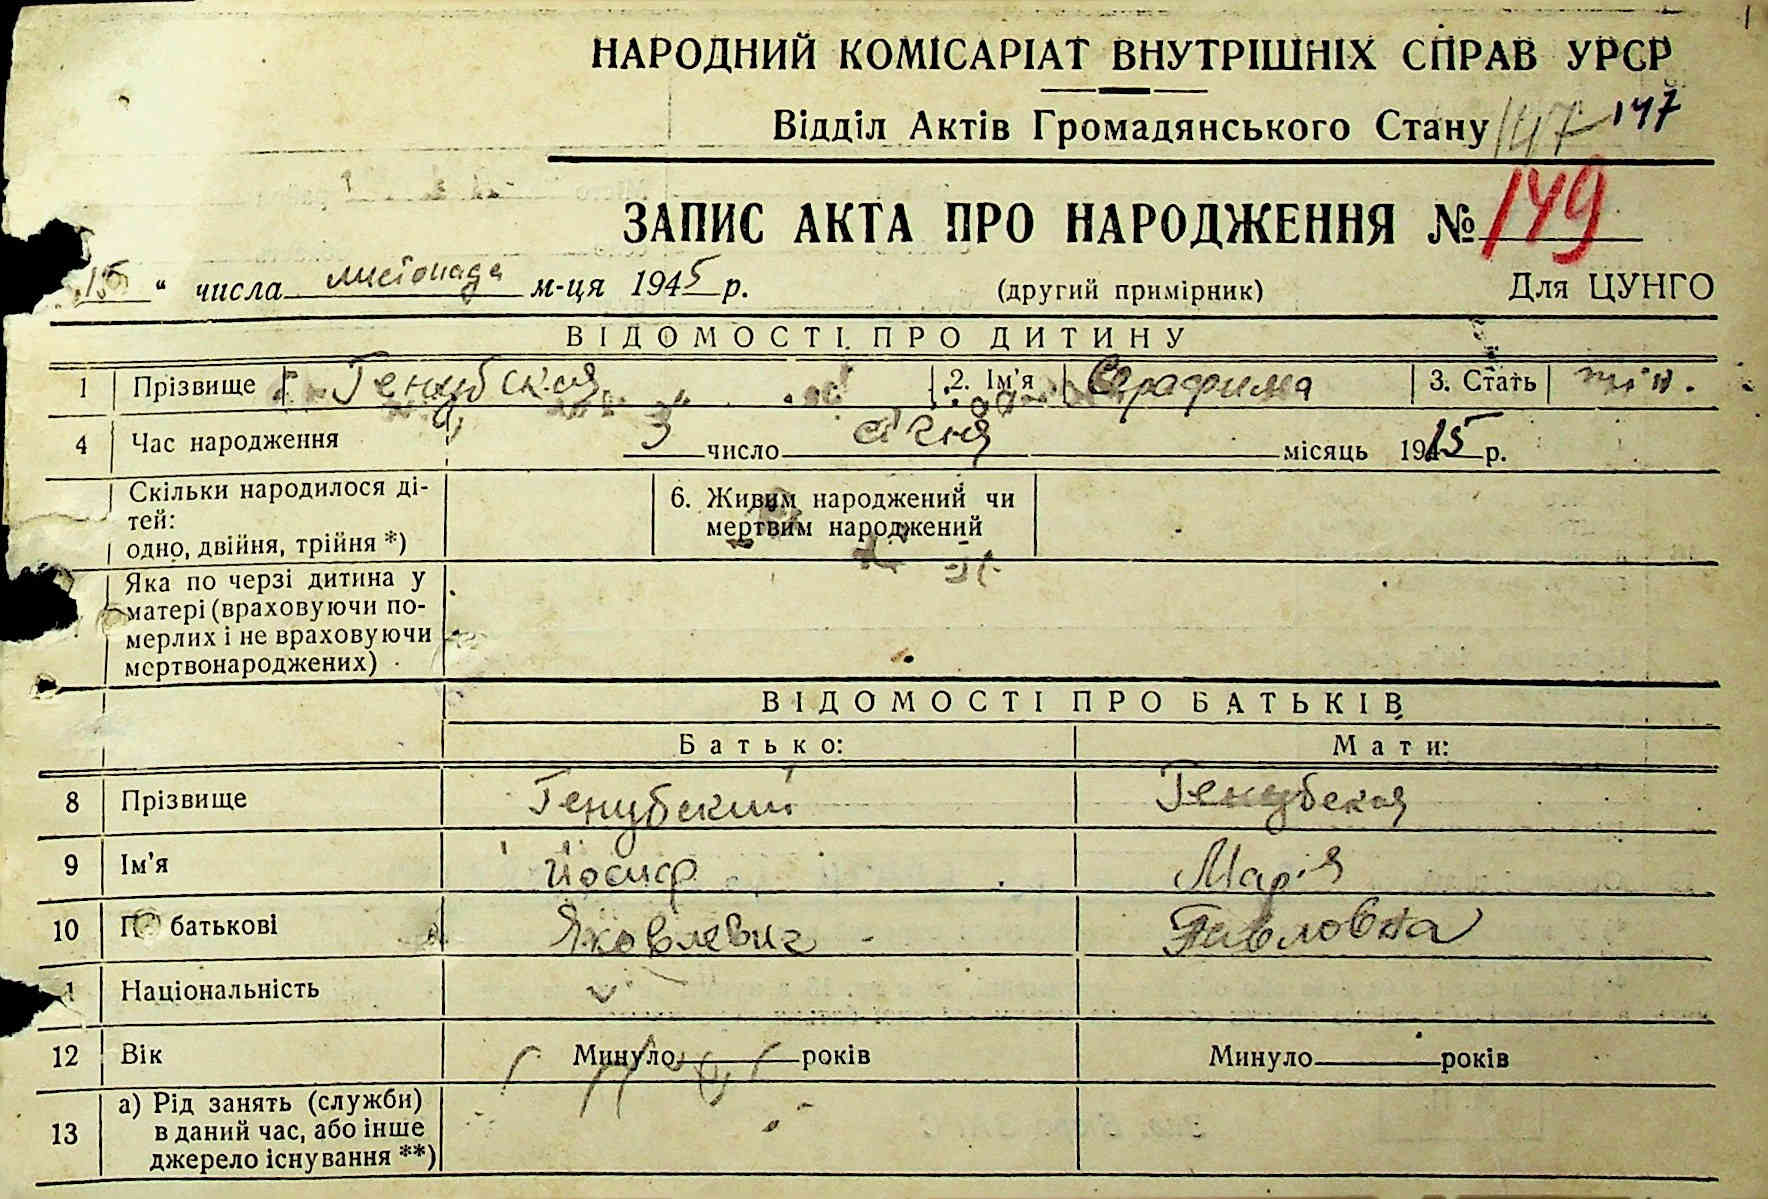 НАРОДНИЙ КОМІСАРІАТ ВНУТРІШНІХ СПРАВ УРСР
Відділ Актів Громадянського Стану 147 147
ЗАПИС АКТА ПРО НАРОДЖЕННЯ № 149
15 " числа листопада м-ця 1945 р. (другий примірник) Для ЦУНГО
ВІДОМОСТІ ПРО ДИТИНУ
1 Прізвище Генубская 2. Ім'я Серафима 3. Стать жін.
4 Час народження 3 число січня місяць 1915 р.
Скільки народилося ді-
тей:
одно, двійня, трійня *)
6. Живим народжений чи
мертвим народжений
Яка по черзі дитина у
матері (враховуючи по-
мерлих і не враховуючи
мертвонароджених)
ВІДОМОСТІ ПРО БАТЬКІВ
Батько: Мати:
8 Прізвище Генубский Генубская
9 Ім'я Йосиф Марія
10 По батькові Яковлевич Павловна
Національність
12 Вік Минуло років Минуло років
13 а) Рід занять (служби)
в даний час, або інше
джерело існування **)